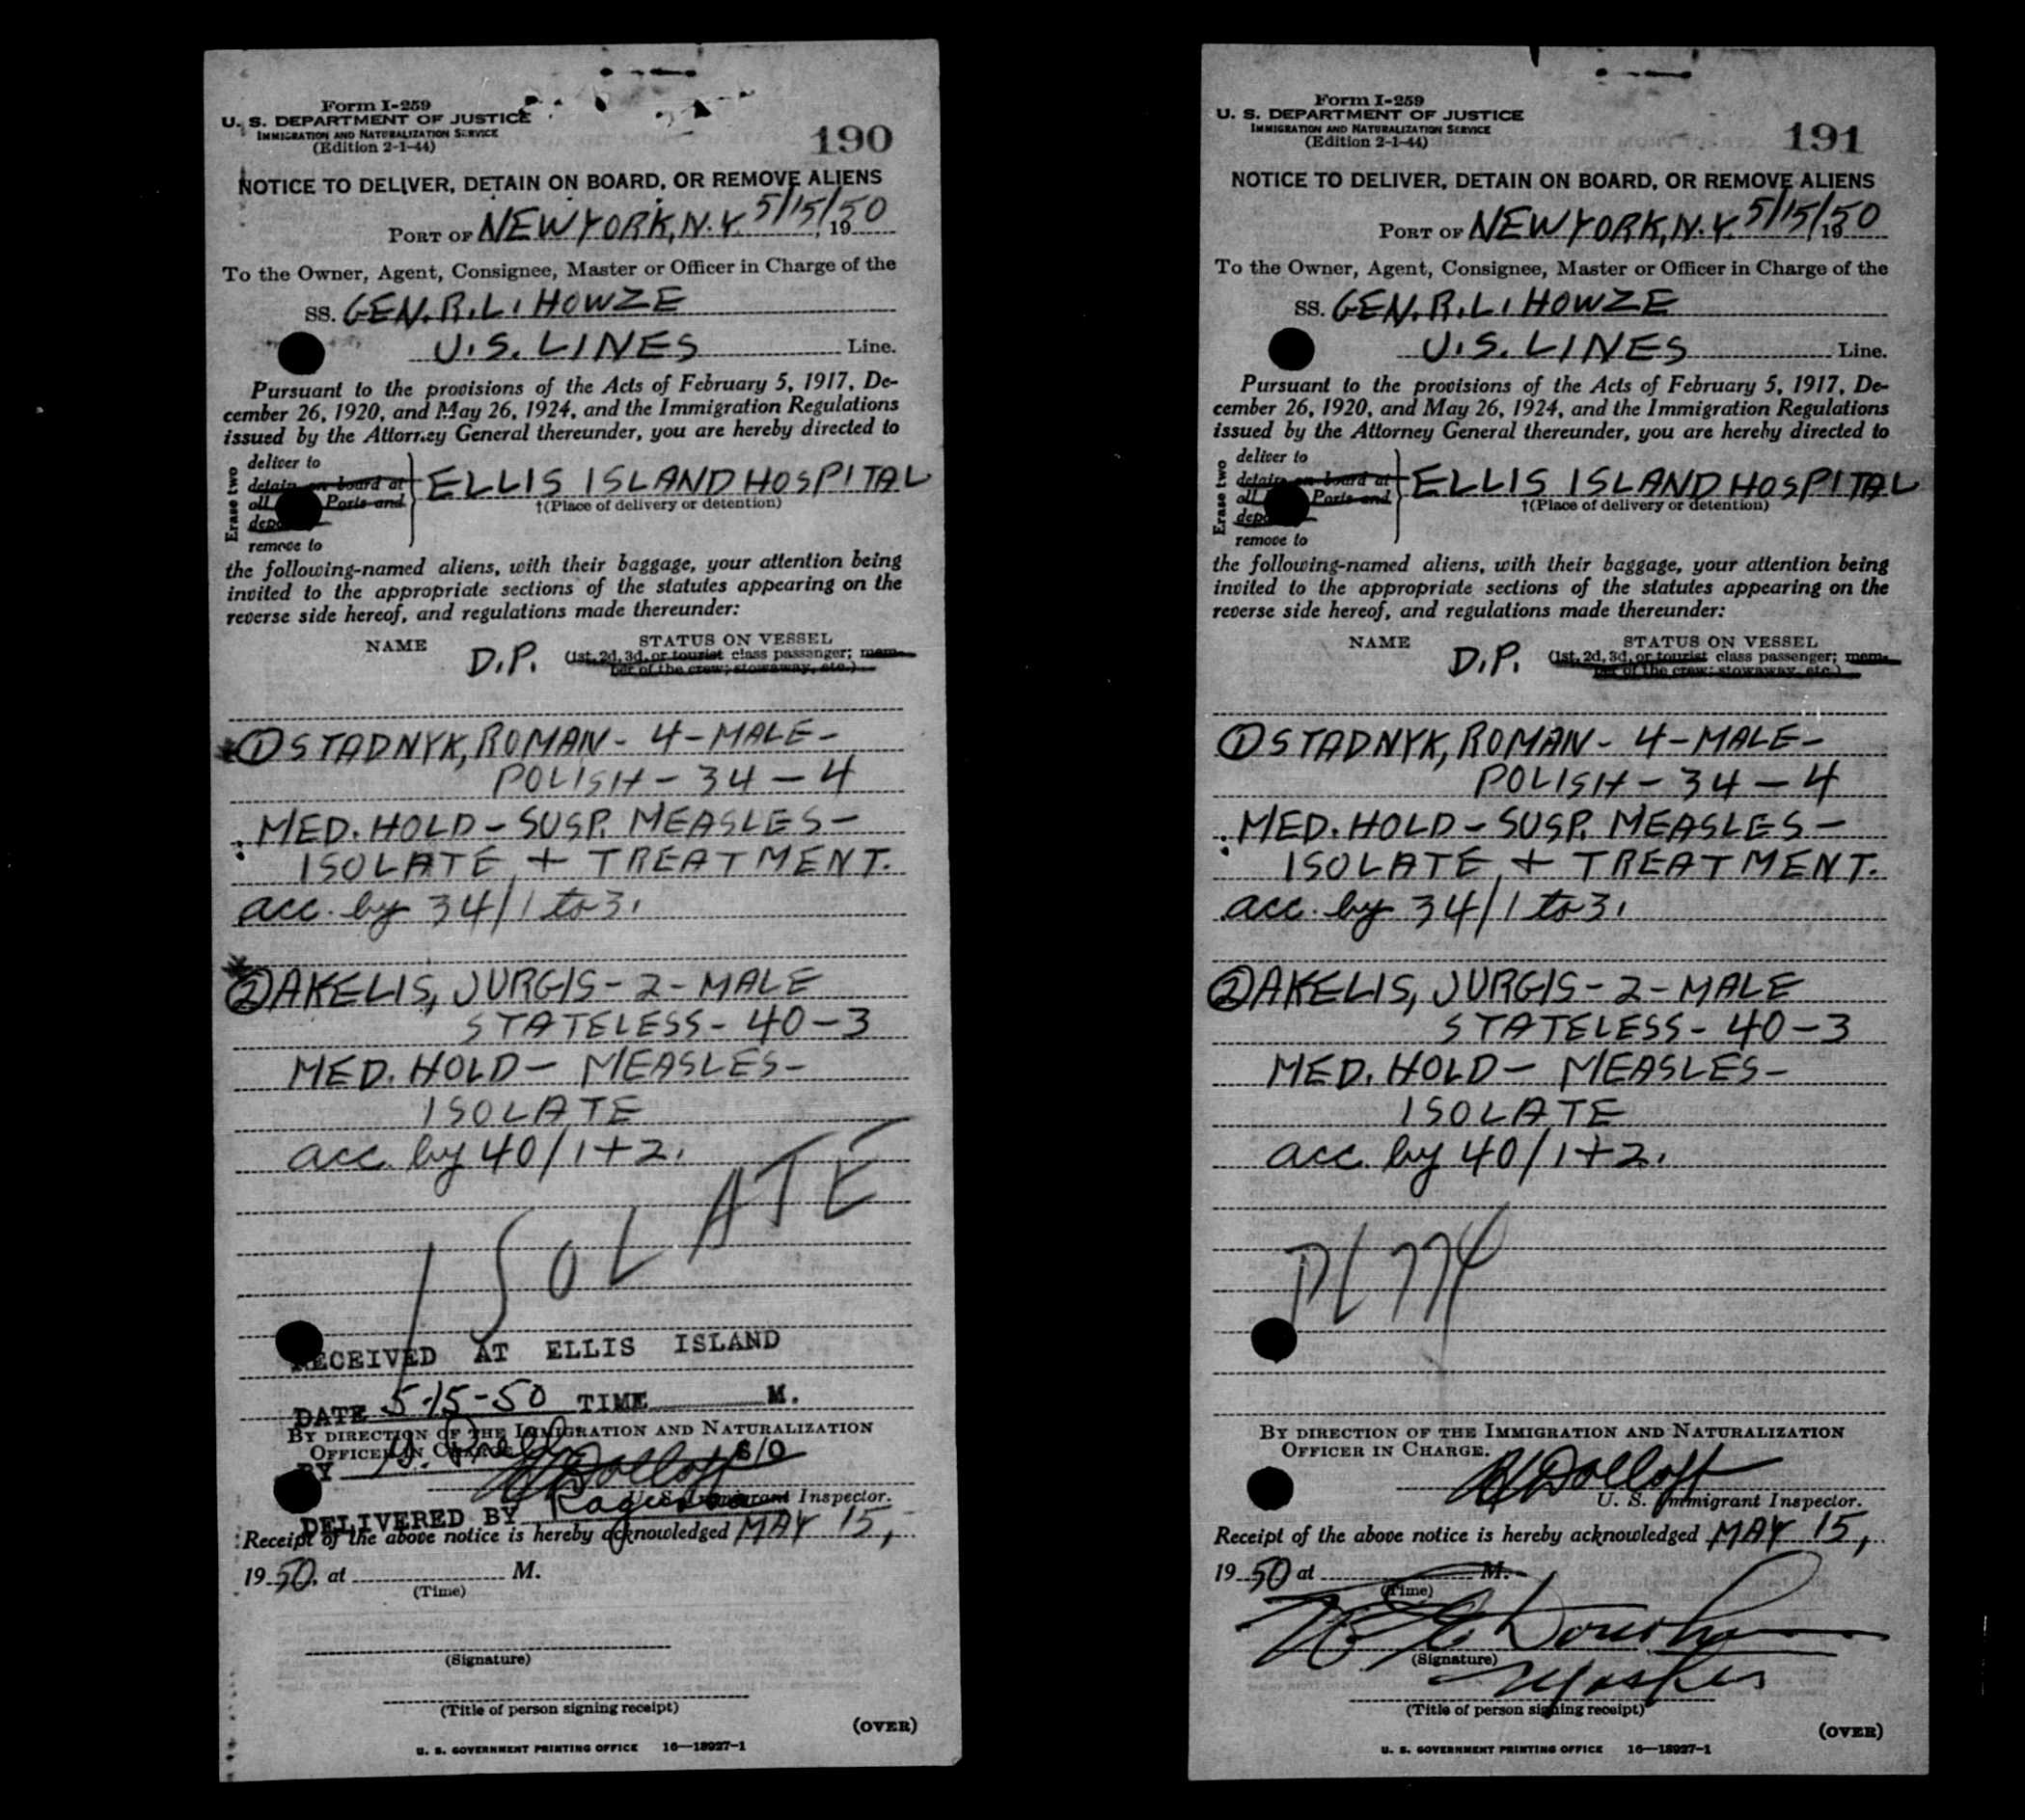 Form I-259
U. S. DEPARTMENT OF JUSTICE
IMMIGRATION AND NATURALIZATION SERVICE
(Edition 2-1-44)
190
NOTICE TO DELIVER, DETAIN ON BOARD, OR REMOVE ALIENS
PORT OF NEW YORK, N.Y. 5/15/50, 19
To the Owner, Agent, Consignee, Master or Officer in Charge of the
SS. GEN. R. L. HOWZE
U.S. LINES Line.
Pursuant to the provisions of the Acts of February 5, 1917, De-
cember 26, 1920, and May 26, 1924, and the Immigration Regulations
issued by the Attorney General thereunder, you are hereby directed to
Erase two
deliver to
detain on board at
all Ports and
remove to
ELLIS ISLAND HOSPITAL
†(Place of delivery or detention)
the following-named aliens, with their baggage, your attention being
invited to the appropriate sections of the statutes appearing on the
reverse side hereof, and regulations made thereunder:
NAME
D.P.
STATUS ON VESSEL
(1st, 2d, 3d, or tourist class passenger; mem-
ber of the crew; stowaway, etc.)
① STADNYK, ROMAN - 4 - MALE -
POLISH - 34 - 4
MED. HOLD - SUSP. MEASLES -
ISOLATE + TREATMENT.
acc. by 34/1 to 3.
② AKELIS, JURGIS - 2 - MALE
STATELESS - 40 - 3
MED. HOLD - MEASLES -
ISOLATE
acc. by 40/1+2.
ISOLATE
RECEIVED AT ELLIS ISLAND
DATE 5-15-50 TIME M.
BY DIRECTION OF THE IMMIGRATION AND NATURALIZATION
OFFICER IN CHARGE
BY S/O
Dolloff
Inspector.
DELIVERED BY
Receipt of the above notice is hereby acknowledged MAY 15,
1950, at M.
(Time)
(Signature)
(Title of person signing receipt)
(OVER)
U. S. GOVERNMENT PRINTING OFFICE 16—18927-1
Form I-259
U. S. DEPARTMENT OF JUSTICE
IMMIGRATION AND NATURALIZATION SERVICE
(Edition 2-1-44)
191
NOTICE TO DELIVER, DETAIN ON BOARD, OR REMOVE ALIENS
PORT OF NEW YORK, N.Y. 5/15/50, 19
To the Owner, Agent, Consignee, Master or Officer in Charge of the
SS. GEN. R. L. HOWZE
U.S. LINES Line.
Pursuant to the provisions of the Acts of February 5, 1917, De-
cember 26, 1920, and May 26, 1924, and the Immigration Regulations
issued by the Attorney General thereunder, you are hereby directed to
Erase two
deliver to
detain on board at
all Ports and
remove to
ELLIS ISLAND HOSPITAL
†(Place of delivery or detention)
the following-named aliens, with their baggage, your attention being
invited to the appropriate sections of the statutes appearing on the
reverse side hereof, and regulations made thereunder:
NAME
D.P.
STATUS ON VESSEL
(1st, 2d, 3d, or tourist class passenger; mem-
ber of the crew; stowaway, etc.)
① STADNYK, ROMAN - 4 - MALE -
POLISH - 34 - 4
MED. HOLD - SUSP. MEASLES -
ISOLATE + TREATMENT.
acc. by 34/1 to 3.
② AKELIS, JURGIS - 2 - MALE
STATELESS - 40 - 3
MED. HOLD - MEASLES -
ISOLATE
acc. by 40/1+2.
BY DIRECTION OF THE IMMIGRATION AND NATURALIZATION
OFFICER IN CHARGE.
Dolloff
U. S. Immigrant Inspector.
Receipt of the above notice is hereby acknowledged MAY 15,
1950 at M.
(Time)
(Signature)
Master
(Title of person signing receipt)
(OVER)
U. S. GOVERNMENT PRINTING OFFICE 16—18927-1